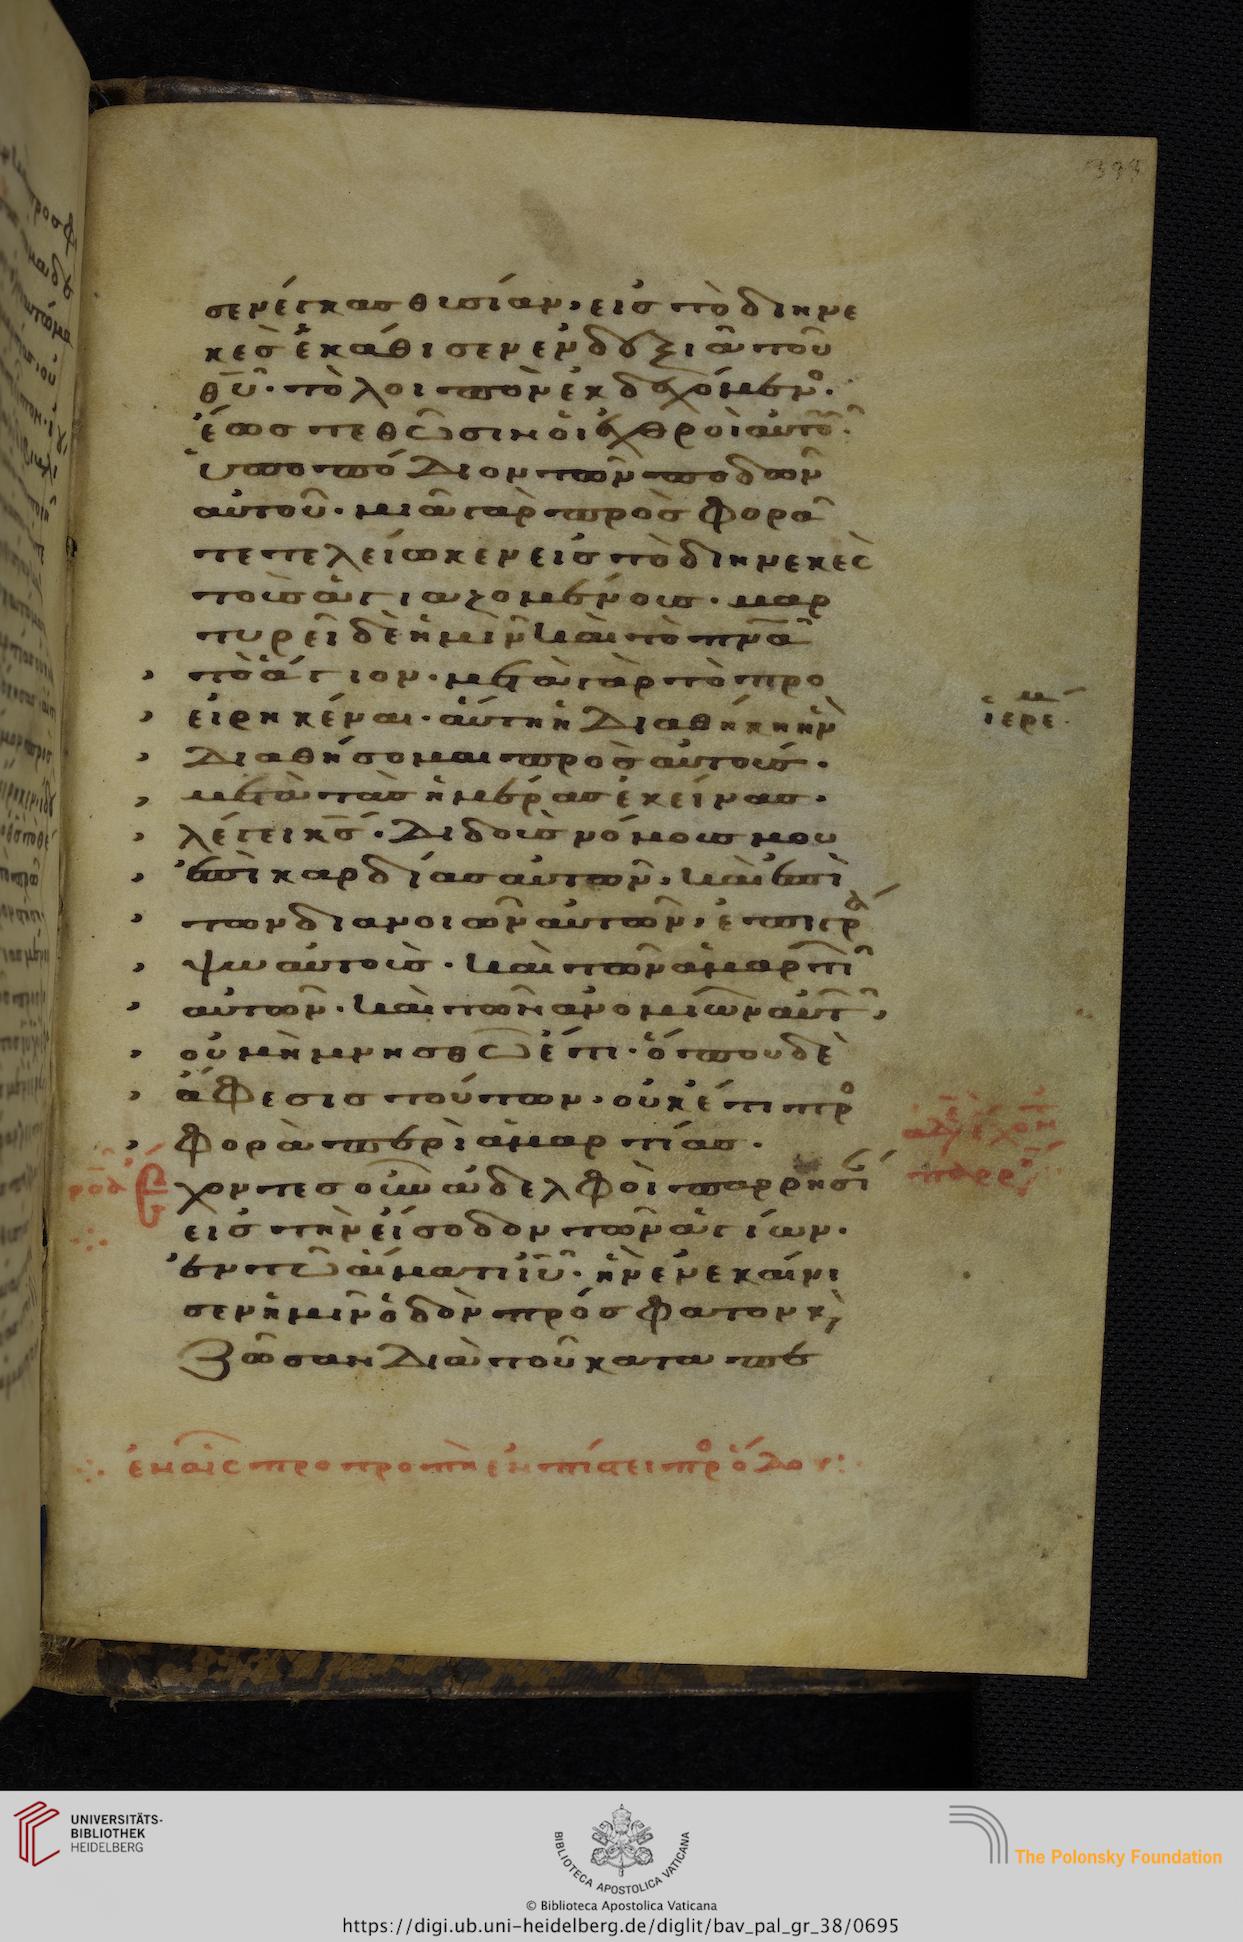 σενέγκασ θυσίαν, εἰσ τὸ διηνε
κὲσ ἐκάθισεν ἐν δεξιᾶ τοῦ
θῦ· τὸ λοιπὸν ἐκδεχόμενο·
ἕωσ τεθῶσιν ὁι ἐχθροὶ αὐτοῦ·
ὑποπόδιον τῶν ποδῶν
αὐτοῦ· μιᾶ γὰρ προσφορᾶ
τετελείωκεν εἰσ τὸ διηνεκὲσ
τοὺσ ἁγιαζομένουσ· μαρ
τυρεῖ δὲ ἡμῖν καὶ τὸ πνᾶ
τὸ ἅγιον· μετὰ γὰρ τὸ προ
ειρηκέναι· ἁύτη ἡ διαθήκη ἣν
ἱερεμ
διαθήσομαι πρὸσ αὐτούσ·
μετὰ τὰσ ἡμέρασ ἐκείνασ·
λέγει κσ· διδοὺσ νόμουσ μου
ἐπὶ καρδίασ αὐτῶν, καὶ ἐπὶ
τῶν διανοιῶν αὐτῶν, ἐπιγρά
ψω αὐτοὺσ· καὶ τῶν ἁμαρτι
αὐτῶν· καὶ τῶν ἀνομιῶν αὐτ,
οὐ μὴ μνησθῶ ἔτι· ὅπου δὲ
ἄφεσισ τούτων· οὐκέτι προ
φορὰ περὶ ἁμαρτίασ·
Ἔχοντεσ οὖν ἀδελφοὶ παρρησί
εἰσ τὴν εἴσοδον τῶν ἁγίων·
ἐν τῶ ἁίματι ιῦ· ἣν ἐνεκαίνι
σεν ἡμῖν ὁδὸν πρόσφατον κ
ζῶσαν διὰ τοῦ καταπε
© Biblioteca Apostolica Vaticana
https://digi.ub.uni-heidelberg.de/diglit/bav_pal_gr_38/0695
UNIVERSITÄTS-
BIBLIOTHEK
HEIDELBERG
BIBLIOTECA APOSTOLICA VATICANA
The Polonsky Foundation